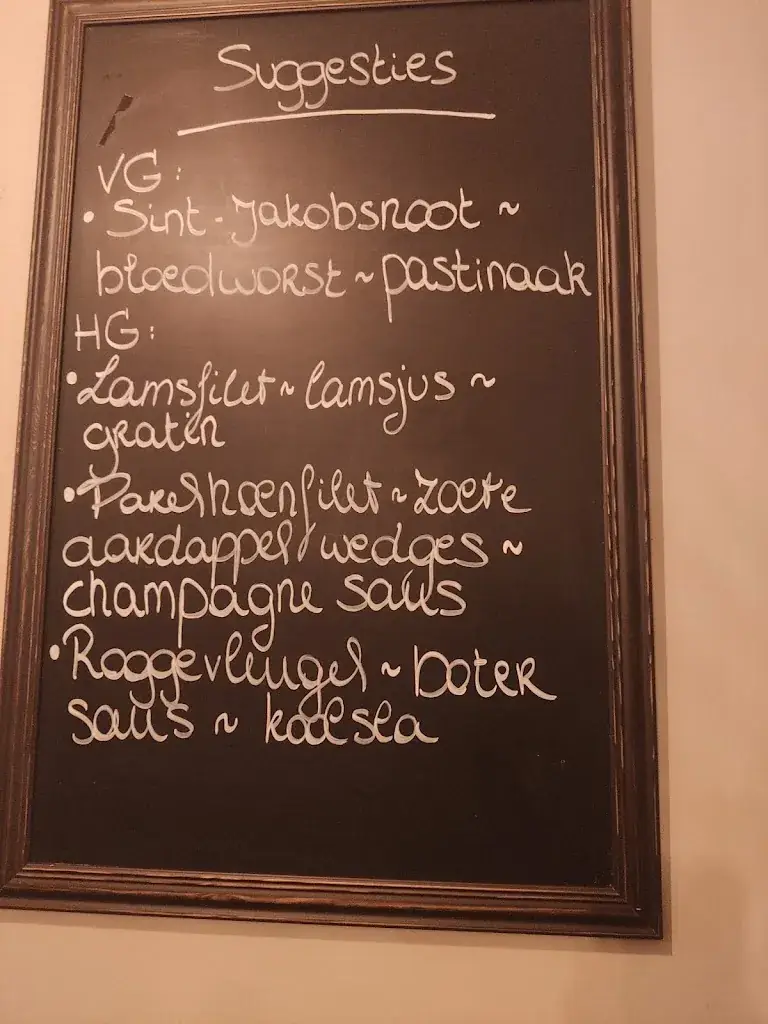 Suggesties
VG:
• Sint-Jakobsnoot ~
bloedworst ~ pastinaak
HG:
• Lamsfilet ~ lamsjus ~
gratin
• Parelhoenfilet ~ zoete
aardappel wedges ~
champagne saus
• Roggevleugel ~ boter
saus ~ koolsla